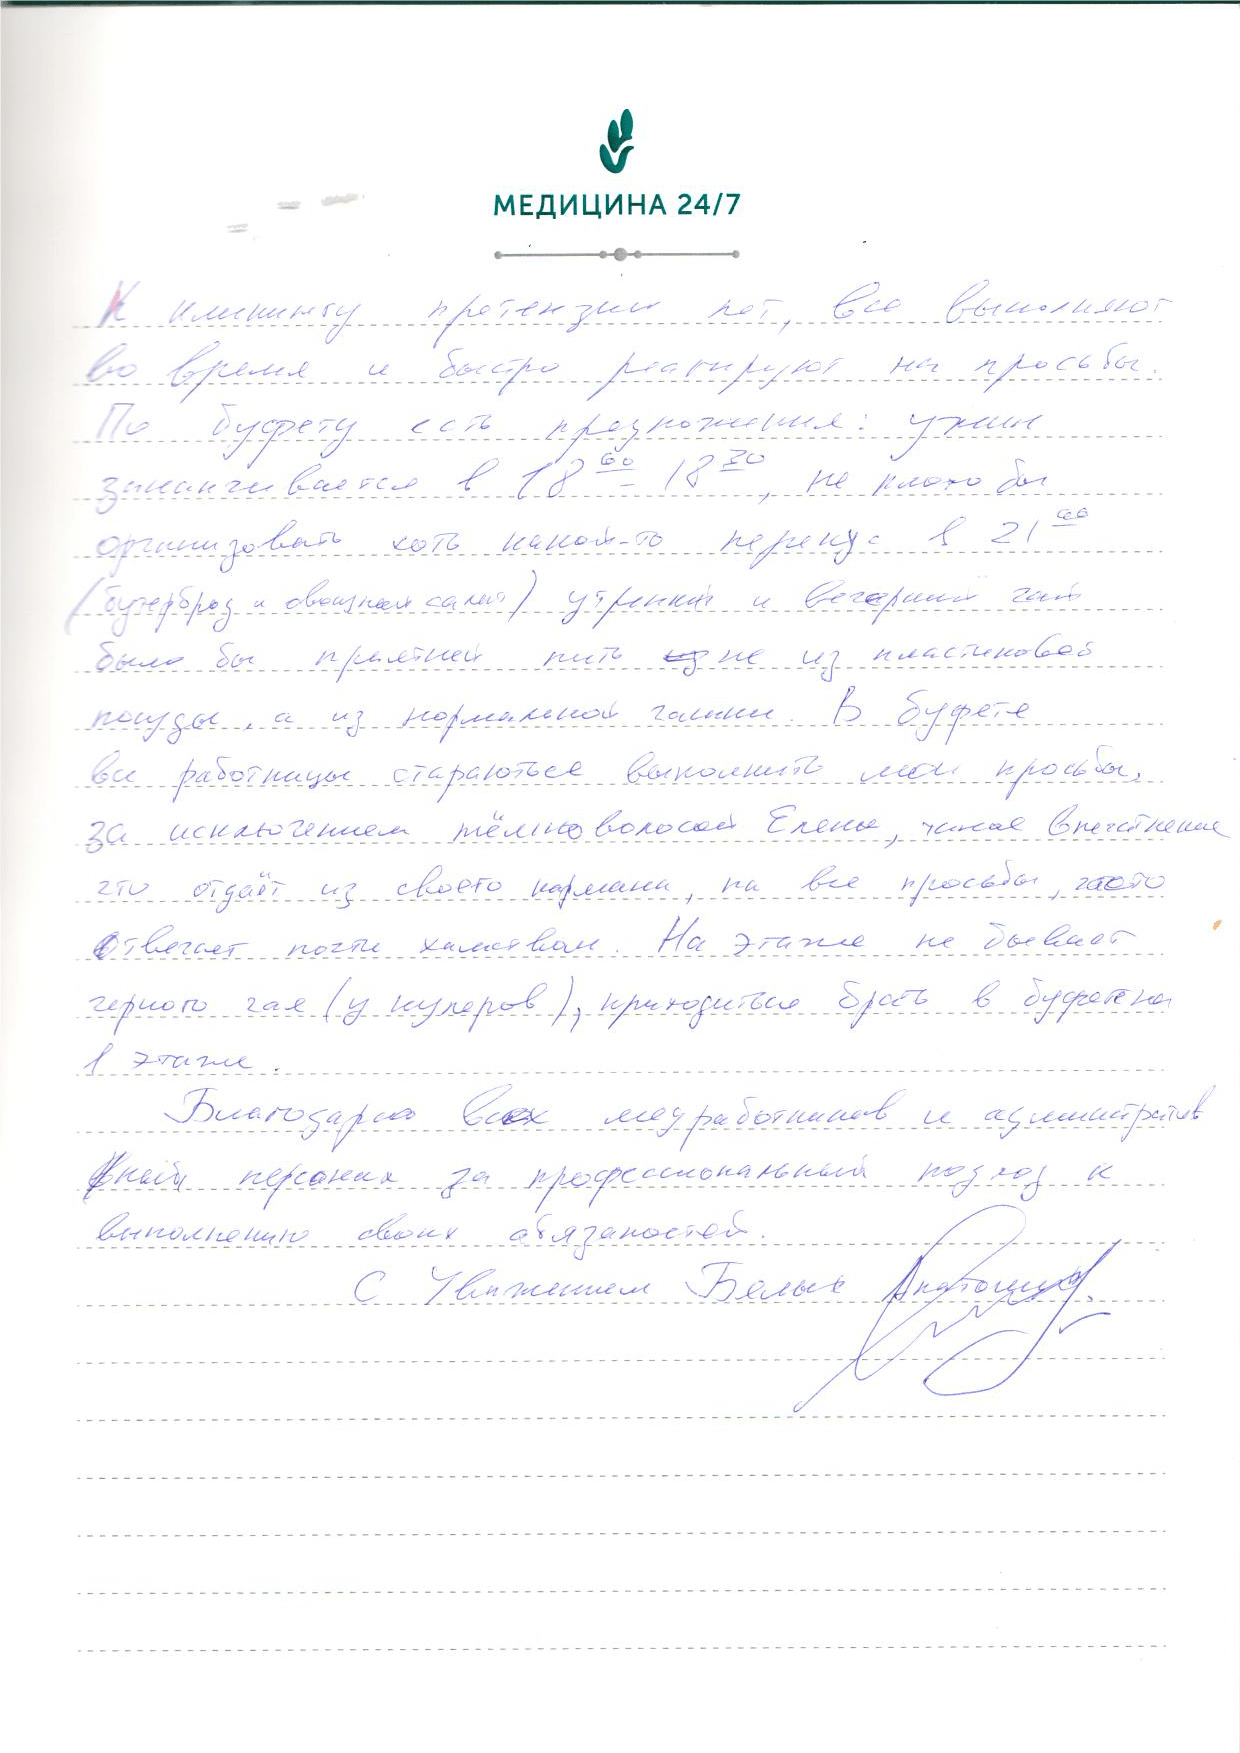 МЕДИЦИНА 24/7
К клинингу претензий нет, все выполняют
во время и быстро реагируют на просьбы.
По буфету есть предложения: ужин
заканчивается в 18 00 - 18 30, не плохо бы
организовать хоть какой-то перекус в 21 00
(бутерброд и овощной салат) утренний и вечерний чай
было бы приятней пить не из пластиковой
посуды, а из нормальной чашки. В буфете
все работницы стараються выполнить мои просьбы,
за исключением тёмноволосой Елены, такое впечатление
что отдаёт из своего кармана, на все просьбы, часто
отвечает почти хамством. На этаже не бывает
черного чая (у кулеров), приходиться брать в буфете на
1 этаже.
Благодарю всех медработников и административ
ный персонал за профессиональный подход к
выполнению своих обязаностей.
С Уважением Белых